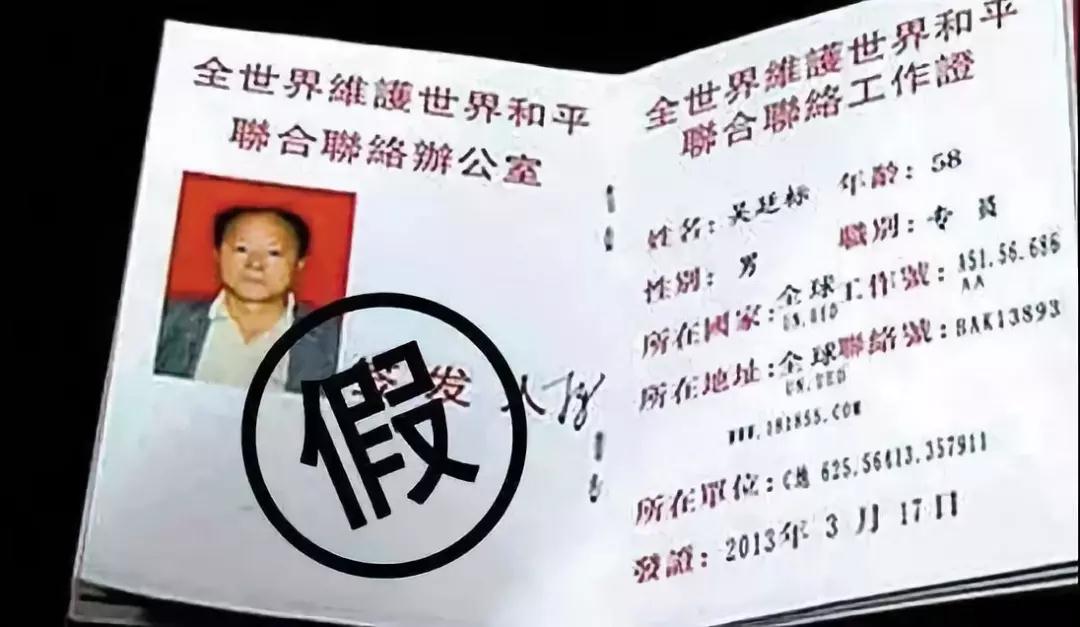 全世界維護世界和平
聯合聯絡辦公室
假
发
全世界維護世界和平
聯合聯絡工作證
姓名:吴廷标 年齡:58
性别:男 職别:专员
所在國家:全球工作號:A51.56.686
AA
所在地址:全球聯絡號:BAK13893
WWW.181855.COM
所在單位:C地 625.56413.357911
發證:2013年3月17日